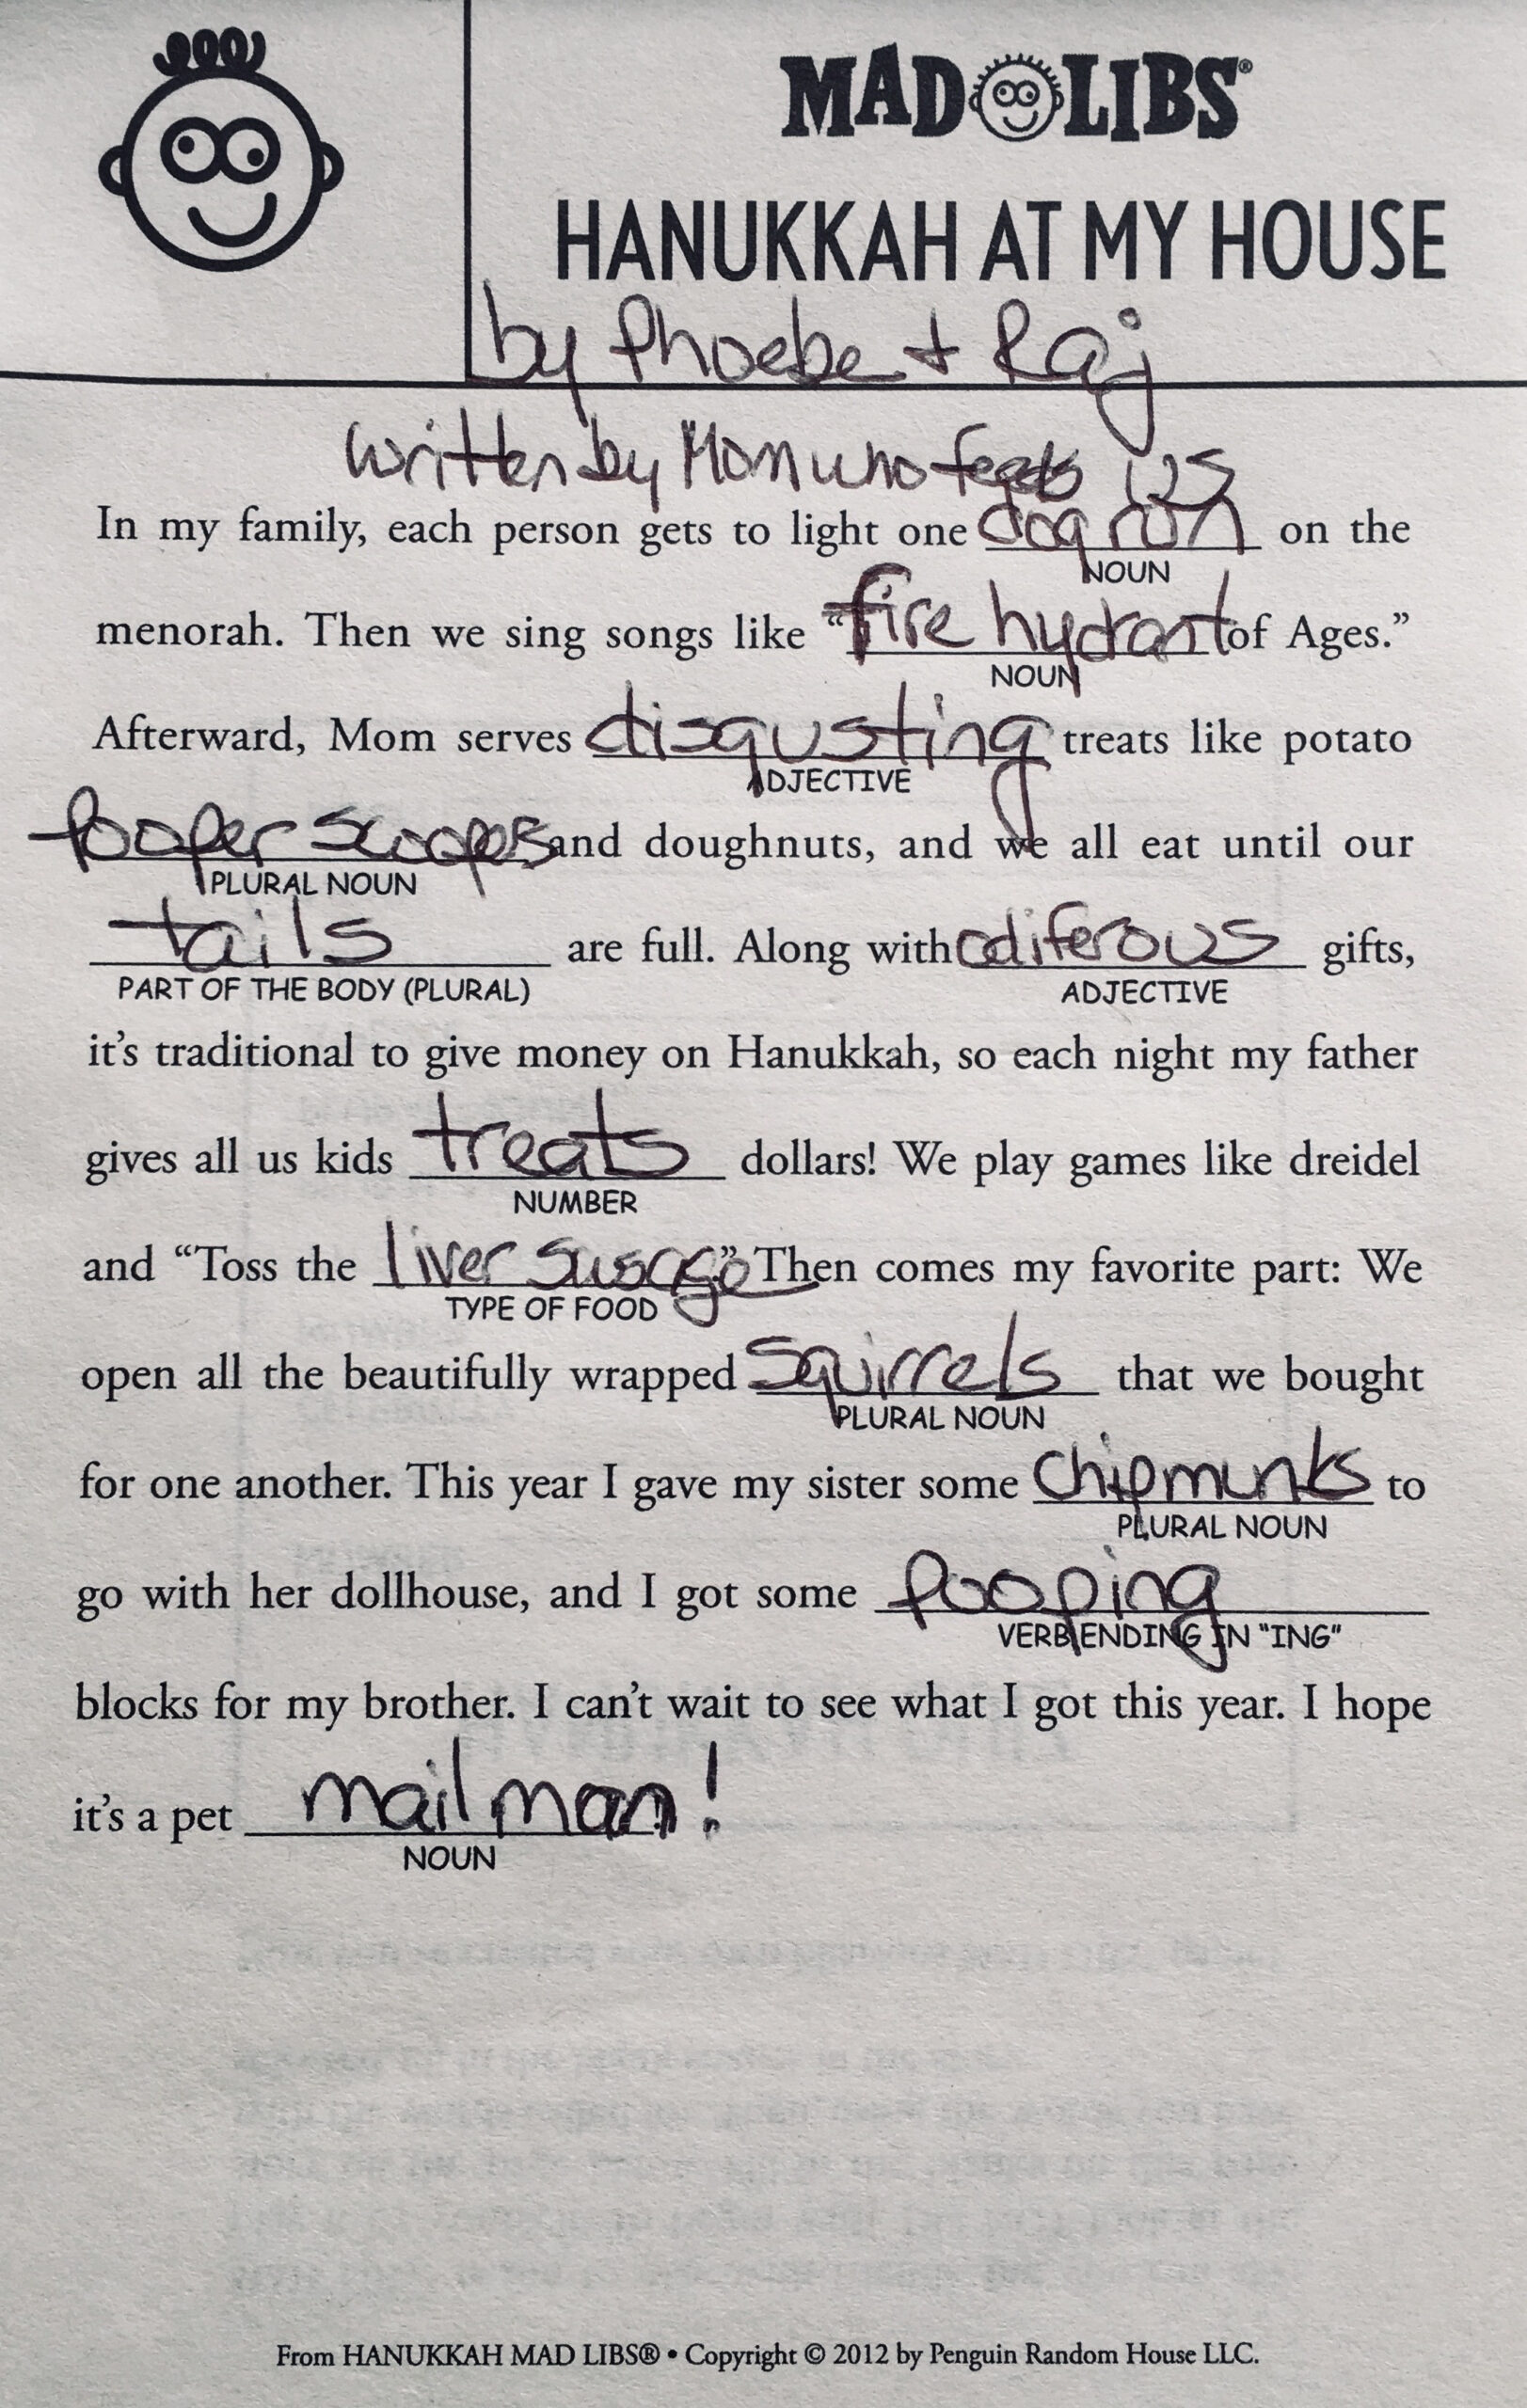 MAD LIBS®
HANUKKAH AT MY HOUSE
by Phoebe + Raj
written by Mom who feeds us
In my family, each person gets to light one dog run on the
NOUN
menorah. Then we sing songs like “fire hydrant of Ages.”
NOUN
Afterward, Mom serves disgusting treats like potato
ADJECTIVE
pooper scoopers and doughnuts, and we all eat until our
PLURAL NOUN
tails are full. Along with odiferous gifts,
PART OF THE BODY (PLURAL) ADJECTIVE
it’s traditional to give money on Hanukkah, so each night my father
gives all us kids treats dollars! We play games like dreidel
NUMBER
and “Toss the liver susage.” Then comes my favorite part: We
TYPE OF FOOD
open all the beautifully wrapped squirrels that we bought
PLURAL NOUN
for one another. This year I gave my sister some chipmunks to
PLURAL NOUN
go with her dollhouse, and I got some pooping
VERB ENDING IN “ING”
blocks for my brother. I can’t wait to see what I got this year. I hope
it’s a pet mailman!
NOUN
From HANUKKAH MAD LIBS® • Copyright © 2012 by Penguin Random House LLC.